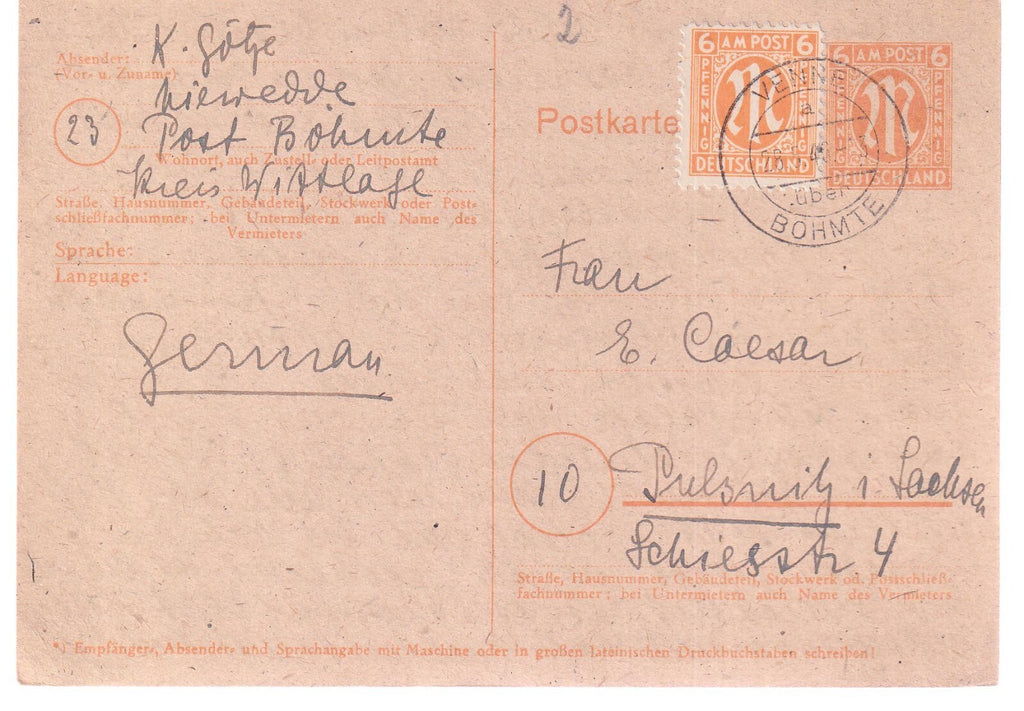 2
Absender:
(Vor- u. Zuname)
K. Götze
Niewedde
23
Post Bohmte
Wohnort, auch Zustell- oder Leitpostamt
Kreis Wittlage
Straße, Hausnummer, Gebäudeteil, Stockwerk oder Post-
schließfachnummer; bei Untermietern auch Name des
Vermieters
Sprache:
Language:
German
Postkarte
6 AM POST 6
PFENNIG
PFENNIG
DEUTSCHLAND
6 AM POST 6
PFENNIG
PFENNIG
DEUTSCHLAND
VENNE
a
über
BOHMTE
Frau
E. Caesar
10
Pulsnitz i. Sachsen
Schiesstr 4
Straße, Hausnummer, Gebäudeteil, Stockwerk od. Postschließ-
fachnummer; bei Untermietern auch Name des Vermieters
*) Empfänger-, Absender- und Sprachangabe mit Maschine oder in großen lateinischen Druckbuchstaben schreiben!